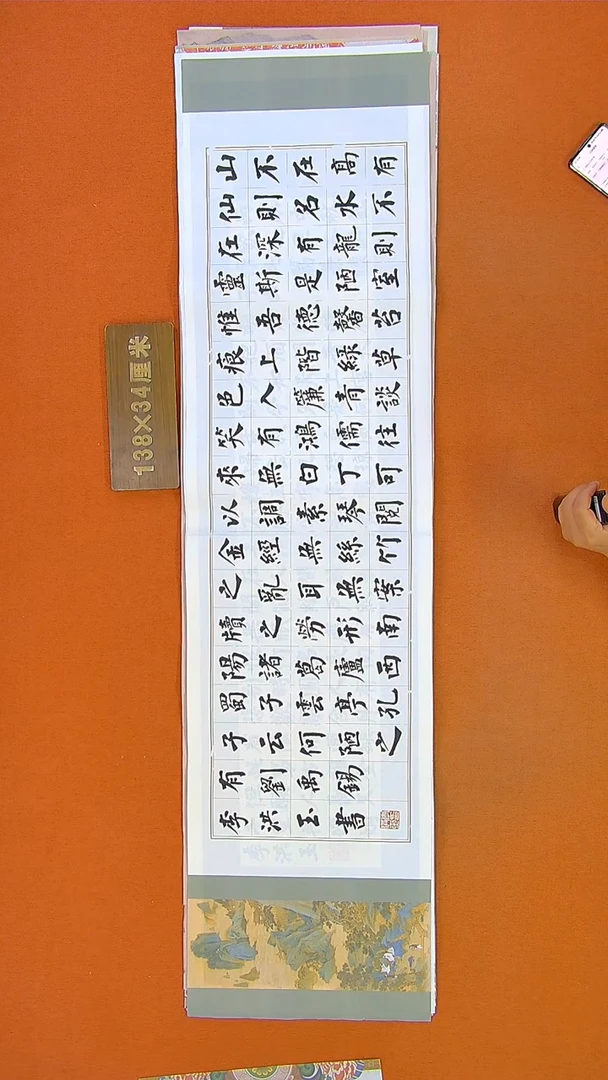 山不在高有
仙則名水不
在深有龍則
靈斯是陋室
惟吾德馨苔
痕上階綠草
色入簾青談
笑有鴻儒往
來無白丁可
以調素琴閱
金經無絲竹
之亂耳無案
牘之勞形南
陽諸葛廬西
蜀子雲亭孔
子云何陋之
有劉禹錫
李洪玉書
138×34厘米